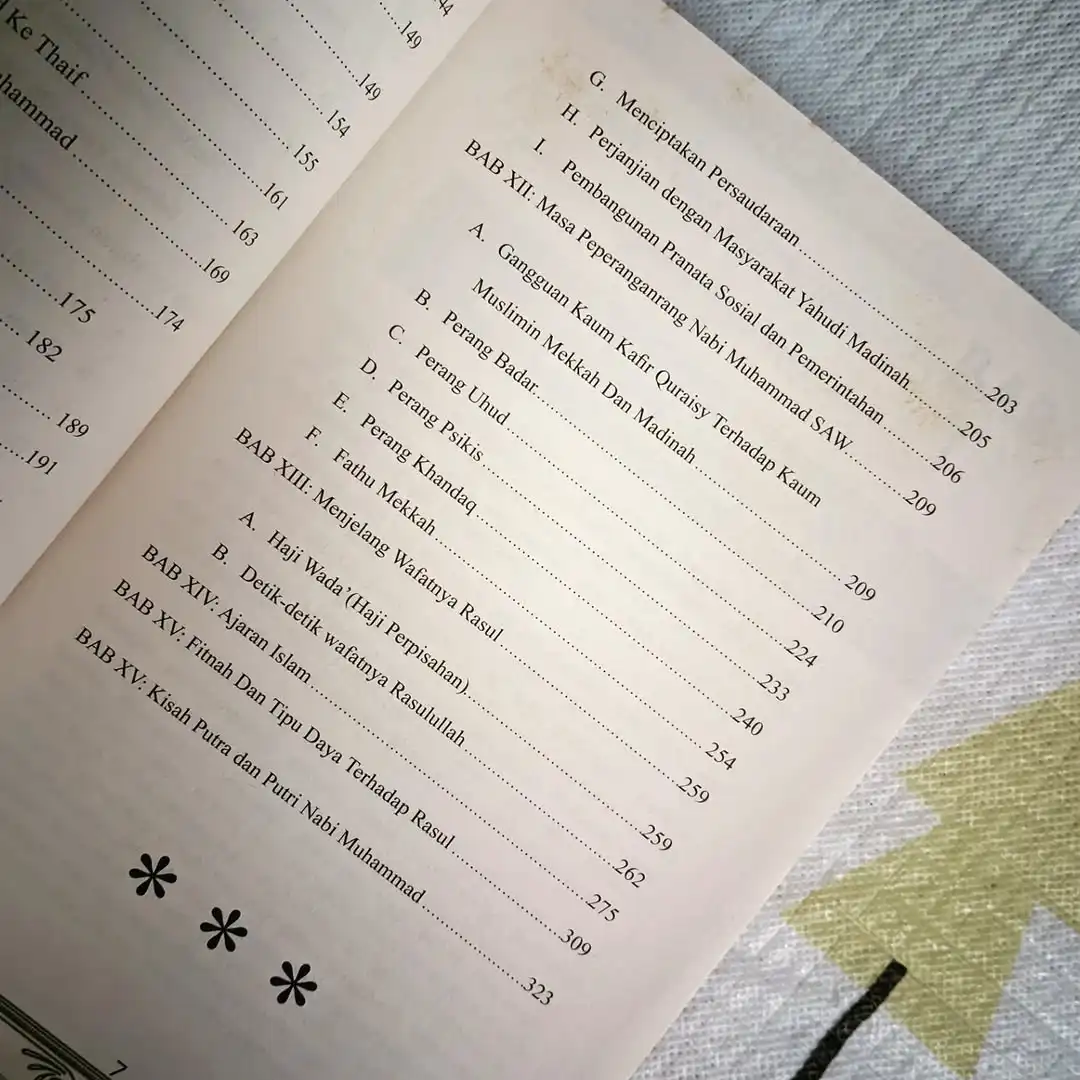 44
149
149
154
Ke Thaif 155
161
hammad 163
169
174
175
182
189
191
G. Menciptakan Persaudaraan 203
H. Perjanjian dengan Masyarakat Yahudi Madinah 205
I. Pembangunan Pranata Sosial dan Pemerintahan 206
BAB XII: Masa Peperanganrang Nabi Muhammad SAW 209
A. Gangguan Kaum Kafir Quraisy Terhadap Kaum
Muslimin Mekkah Dan Madinah 209
B. Perang Badar 210
C. Perang Uhud 224
D. Perang Psikis 233
E. Perang Khandaq 240
F. Fathu Mekkah 254
BAB XIII: Menjelang Wafatnya Rasul 259
A. Haji Wada’(Haji Perpisahan) 259
B. Detik-detik wafatnya Rasulullah 262
BAB XIV: Ajaran Islam 275
BAB XV: Fitnah Dan Tipu Daya Terhadap Rasul 309
BAB XV: Kisah Putra dan Putri Nabi Muhammad 323
7